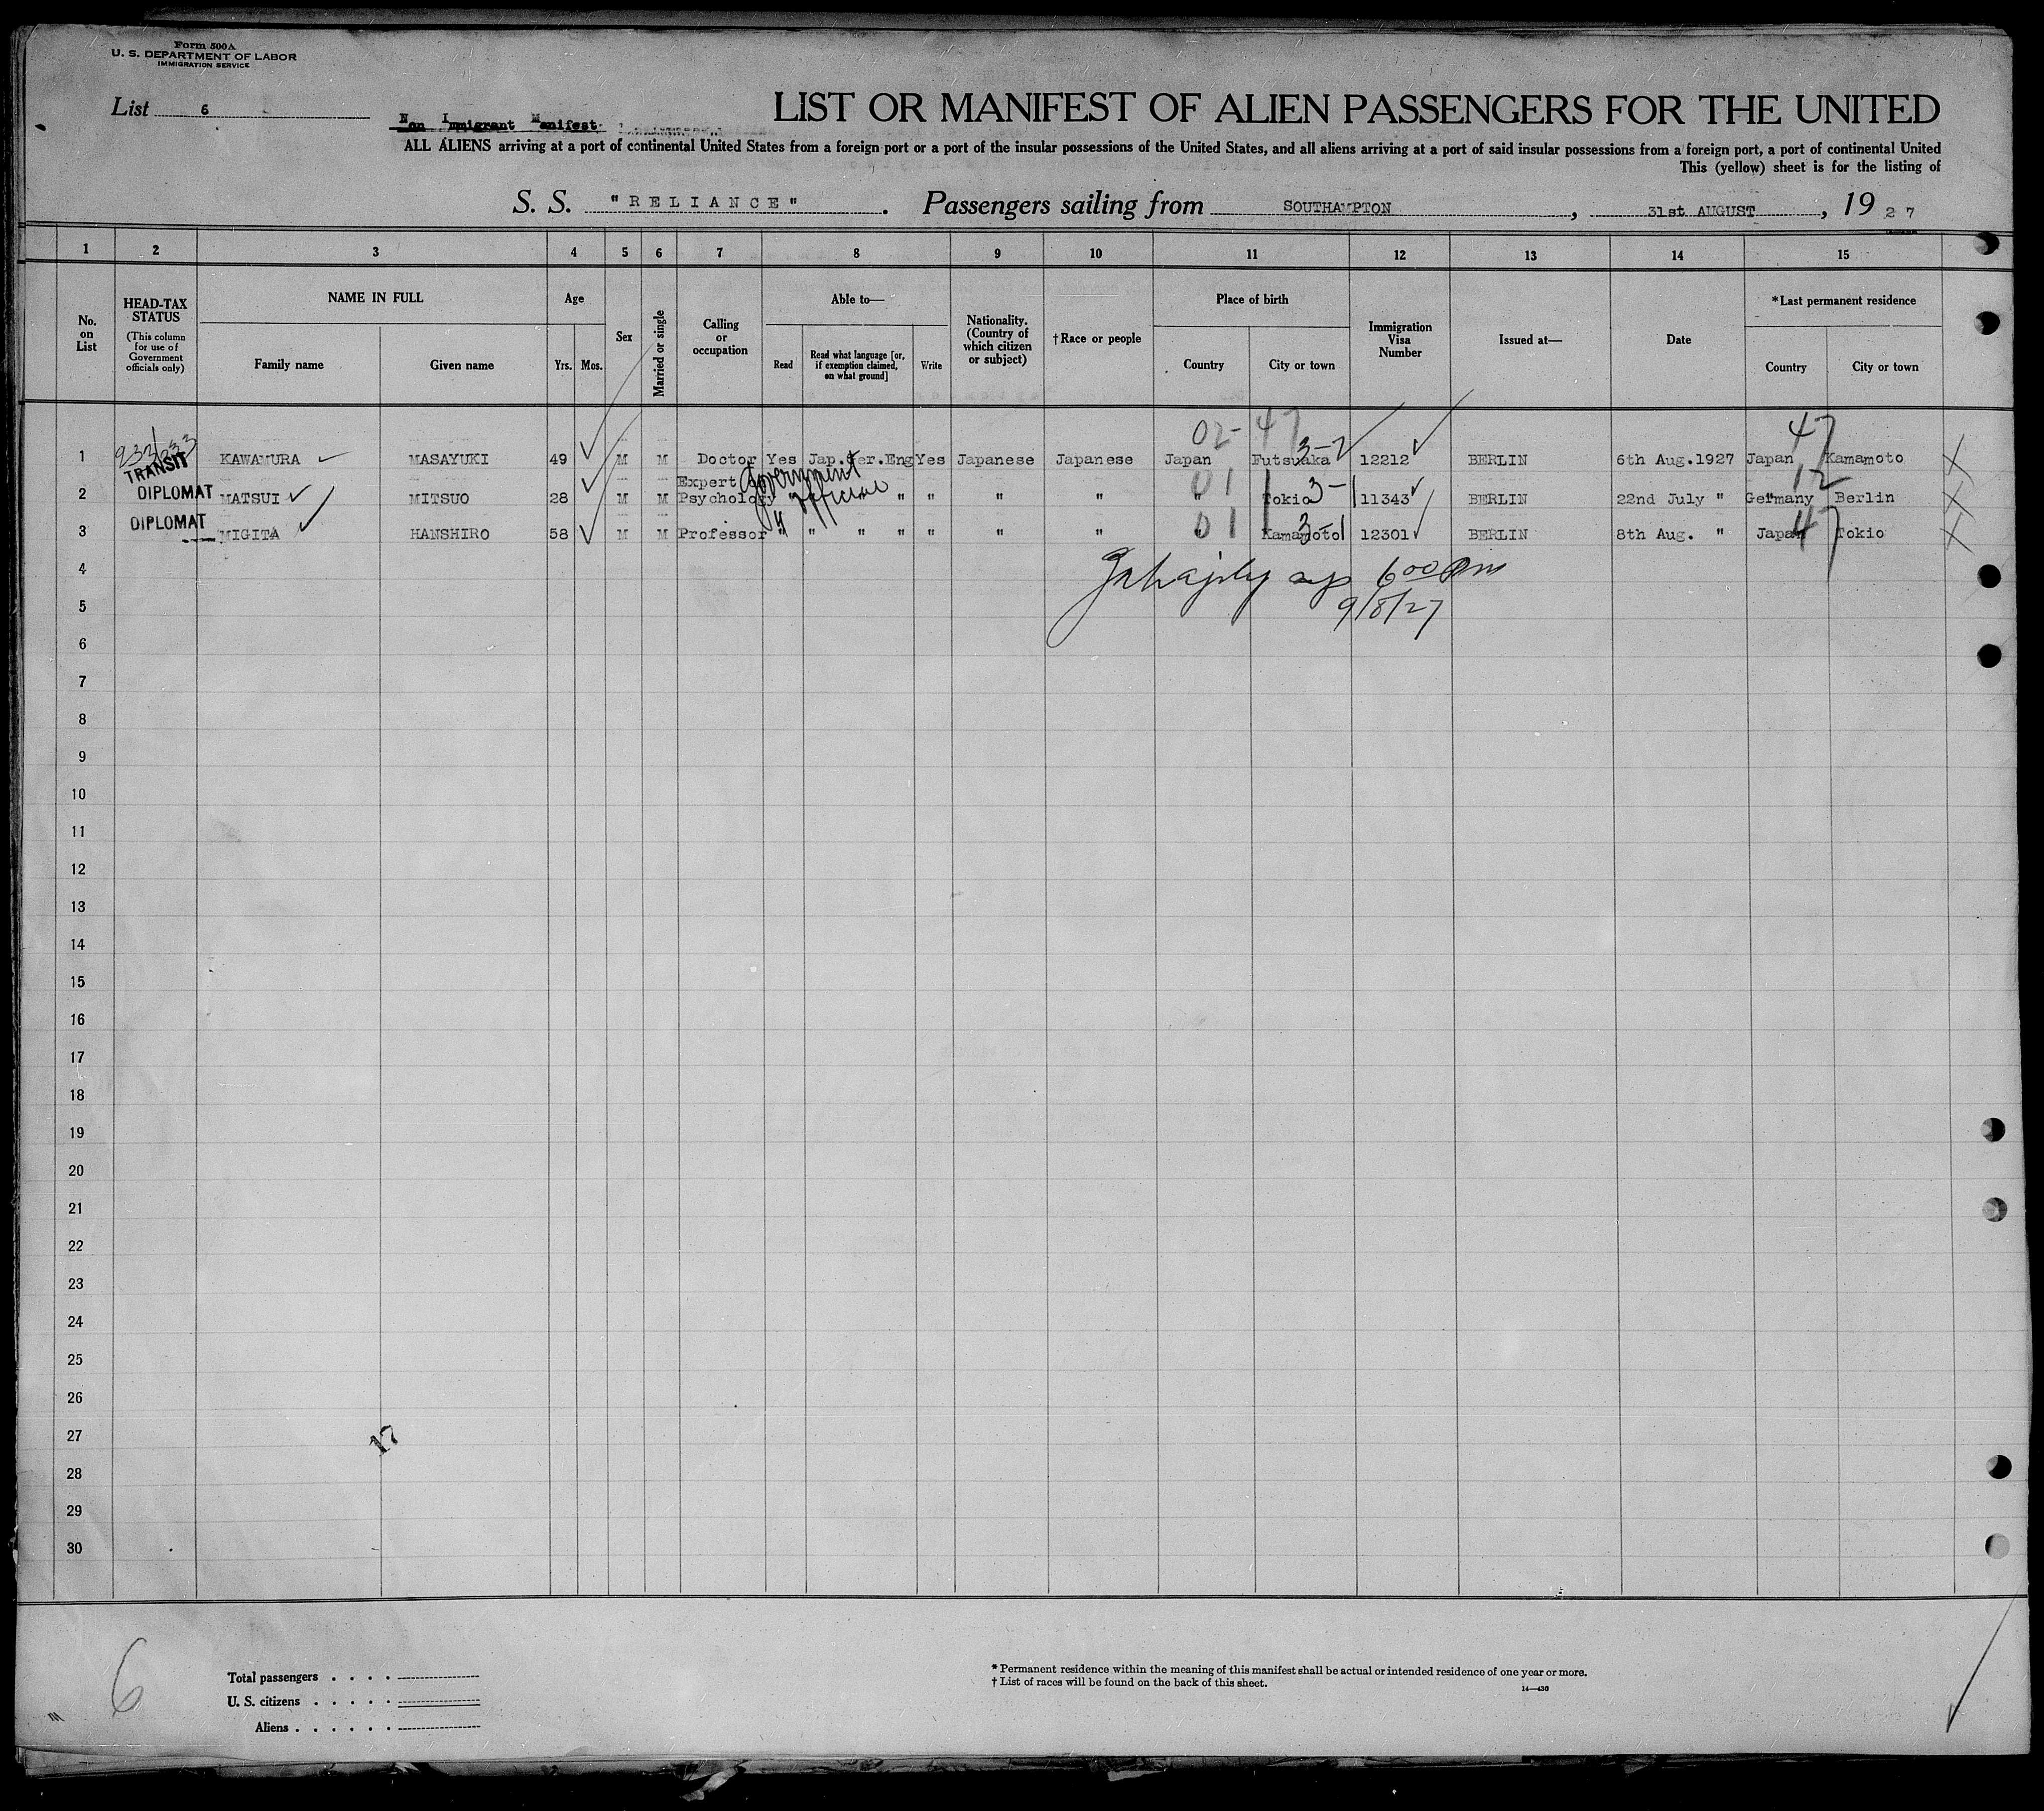 Form 500A
U. S. DEPARTMENT OF LABOR
IMMIGRATION SERVICE
List 6
Non Immigrant Manifest
LIST OR MANIFEST OF ALIEN PASSENGERS FOR THE UNITED
ALL ALIENS arriving at a port of continental United States from a foreign port or a port of the insular possessions of the United States, and all aliens arriving at a port of said insular possessions from a foreign port, a port of continental United
This (yellow) sheet is for the listing of
S. S. "RELIANCE". Passengers sailing from SOUTHAMPTON, 31st AUGUST, 1927
1 2 3 4 5 6 7 8 9 10 11 12 13 14 15
No. on List
HEAD-TAX STATUS
(This column for use of Government officials only)
NAME IN FULL
Family name Given name
Age
Yrs. Mos.
Sex
Married or single
Calling or occupation
Able to—
Read
Read what language [or, if exemption claimed, on what ground]
Write
Nationality. (Country of which citizen or subject)
† Race or people
Place of birth
Country City or town
Immigration Visa Number
Issued at—
Date
*Last permanent residence
Country City or town
02- 47 47
1 TRANSIT KAWAMURA MASAYUKI 49 M M Doctor Yes Jap.Ger.Eng Yes Japanese Japanese Japan Futsuaka 3-2 12212 BERLIN 6th Aug.1927 Japan Kamamoto
Government official
2 DIPLOMAT MATSUI MITSUO 28 M M Expert Psychology " " " " " " " " 01 Tokio 3-1 11343 BERLIN 22nd July " Germany 12 Berlin
3 DIPLOMAT MIGITA HANSHIRO 58 M M Professor " " " " " " " " 01 Kamamoto 3-1 12301 BERLIN 8th Aug. " Japan 47 Tokio
4
6 00 Pm
5
9/8/27
6
7
8
9
10
11
12
13
14
15
16
17
18
19
20
21
22
23
24
25
26
27
17
28
29
30
6
Total passengers . . . .
U. S. citizens . . . . .
Aliens . . . . . .
* Permanent residence within the meaning of this manifest shall be actual or intended residence of one year or more.
† List of races will be found on the back of this sheet.
14—430